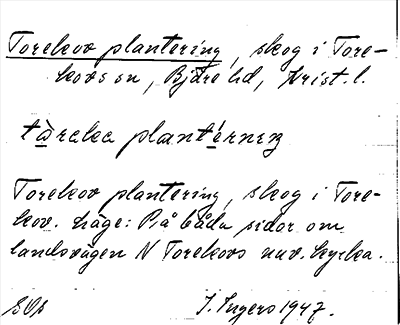 Torekov plantering, skog i Tore-
kovs sn, Bjäre hd, Krist. l.
tὰreka plantérnıŋ
Torekov plantering, skog i Tore-
kov. Läge: På båda sidor om
landsvägen N Torekovs nuv. kyrka.
J. Ingers 1947.